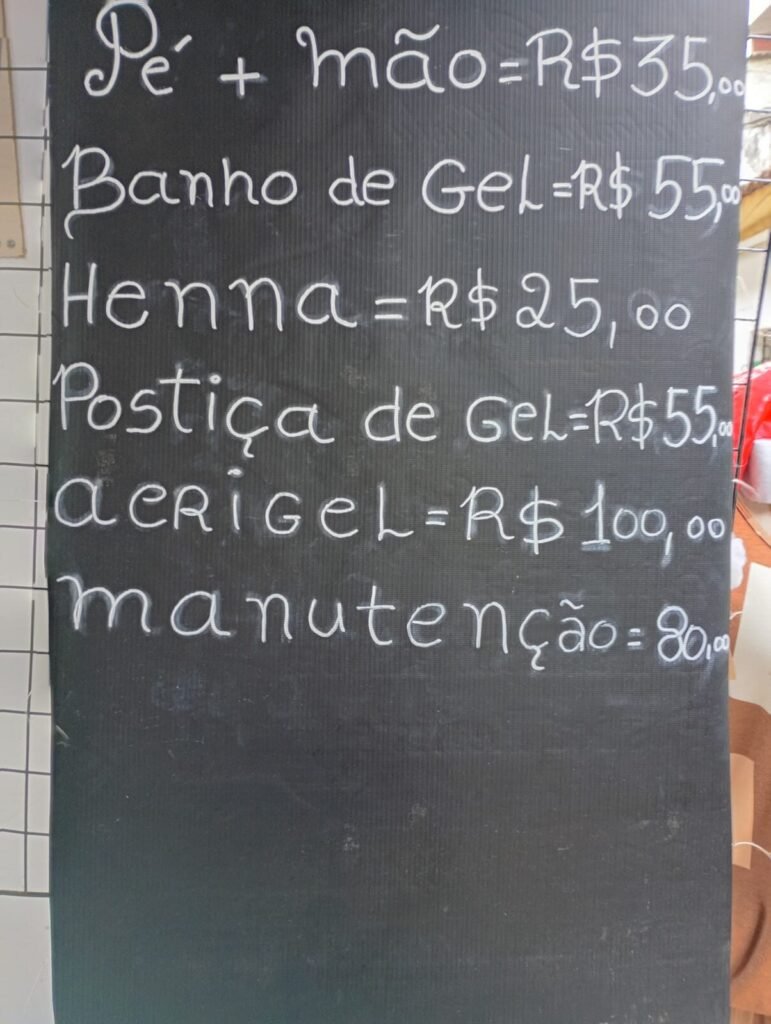 Pé + mão = R$ 35,00
Banho de Gel = R$ 55,00
Henna = R$ 25,00
Postiça de Gel = R$ 55,00
aeRiGel = R$ 100,00
manutenção = 80,00